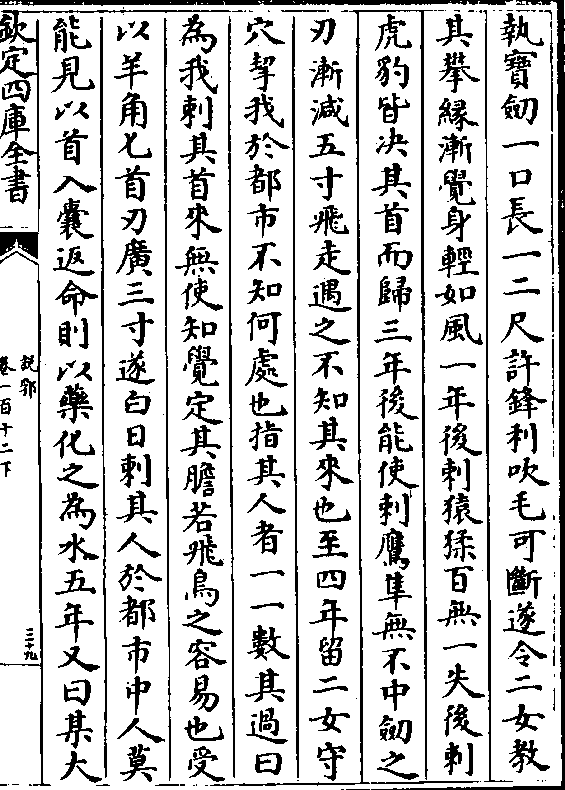 執寶劒一口長一二尺許鋒利吹毛可斷遂令二女教
其攀緣漸覺身輕如風一年後刺猿猱百無一失後刺
虎豹皆决其首而歸三年後能使刺鷹隼無不中劒之
刃漸減五寸飛走遇之不知其來也至四年留二女守
穴挈我於都市不知何處也指其人者一一數其過曰
為我刺其首來無使知覺定其膽若飛鳥之容易也受
以羊角匕首刃廣三寸遂白日刺其人於都市中人莫
能見以首入囊返命則以藥化之為水五年又曰某大
欽定四庫全書
說郛
卷一百十二下
三十九